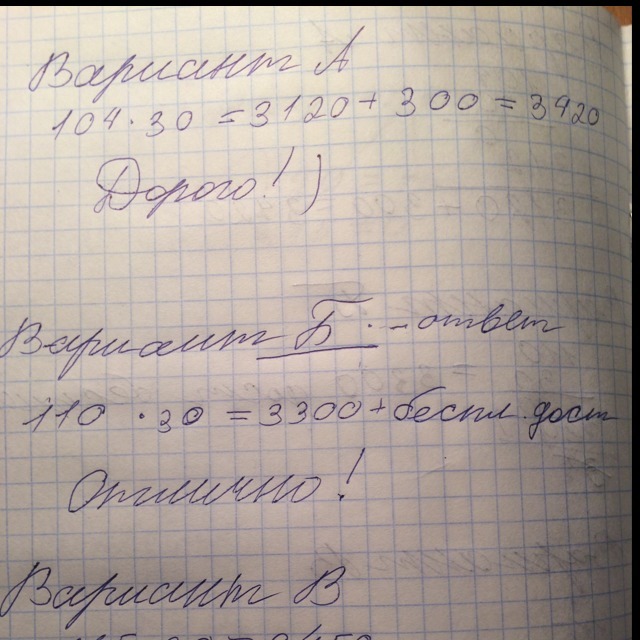 Вариант А
104·30 = 3120 + 300 = 3420
Дорого! )
Вариант Б. - ответ
110 ·30 = 3300 + беспл. дост
Отлично!
Вариант В